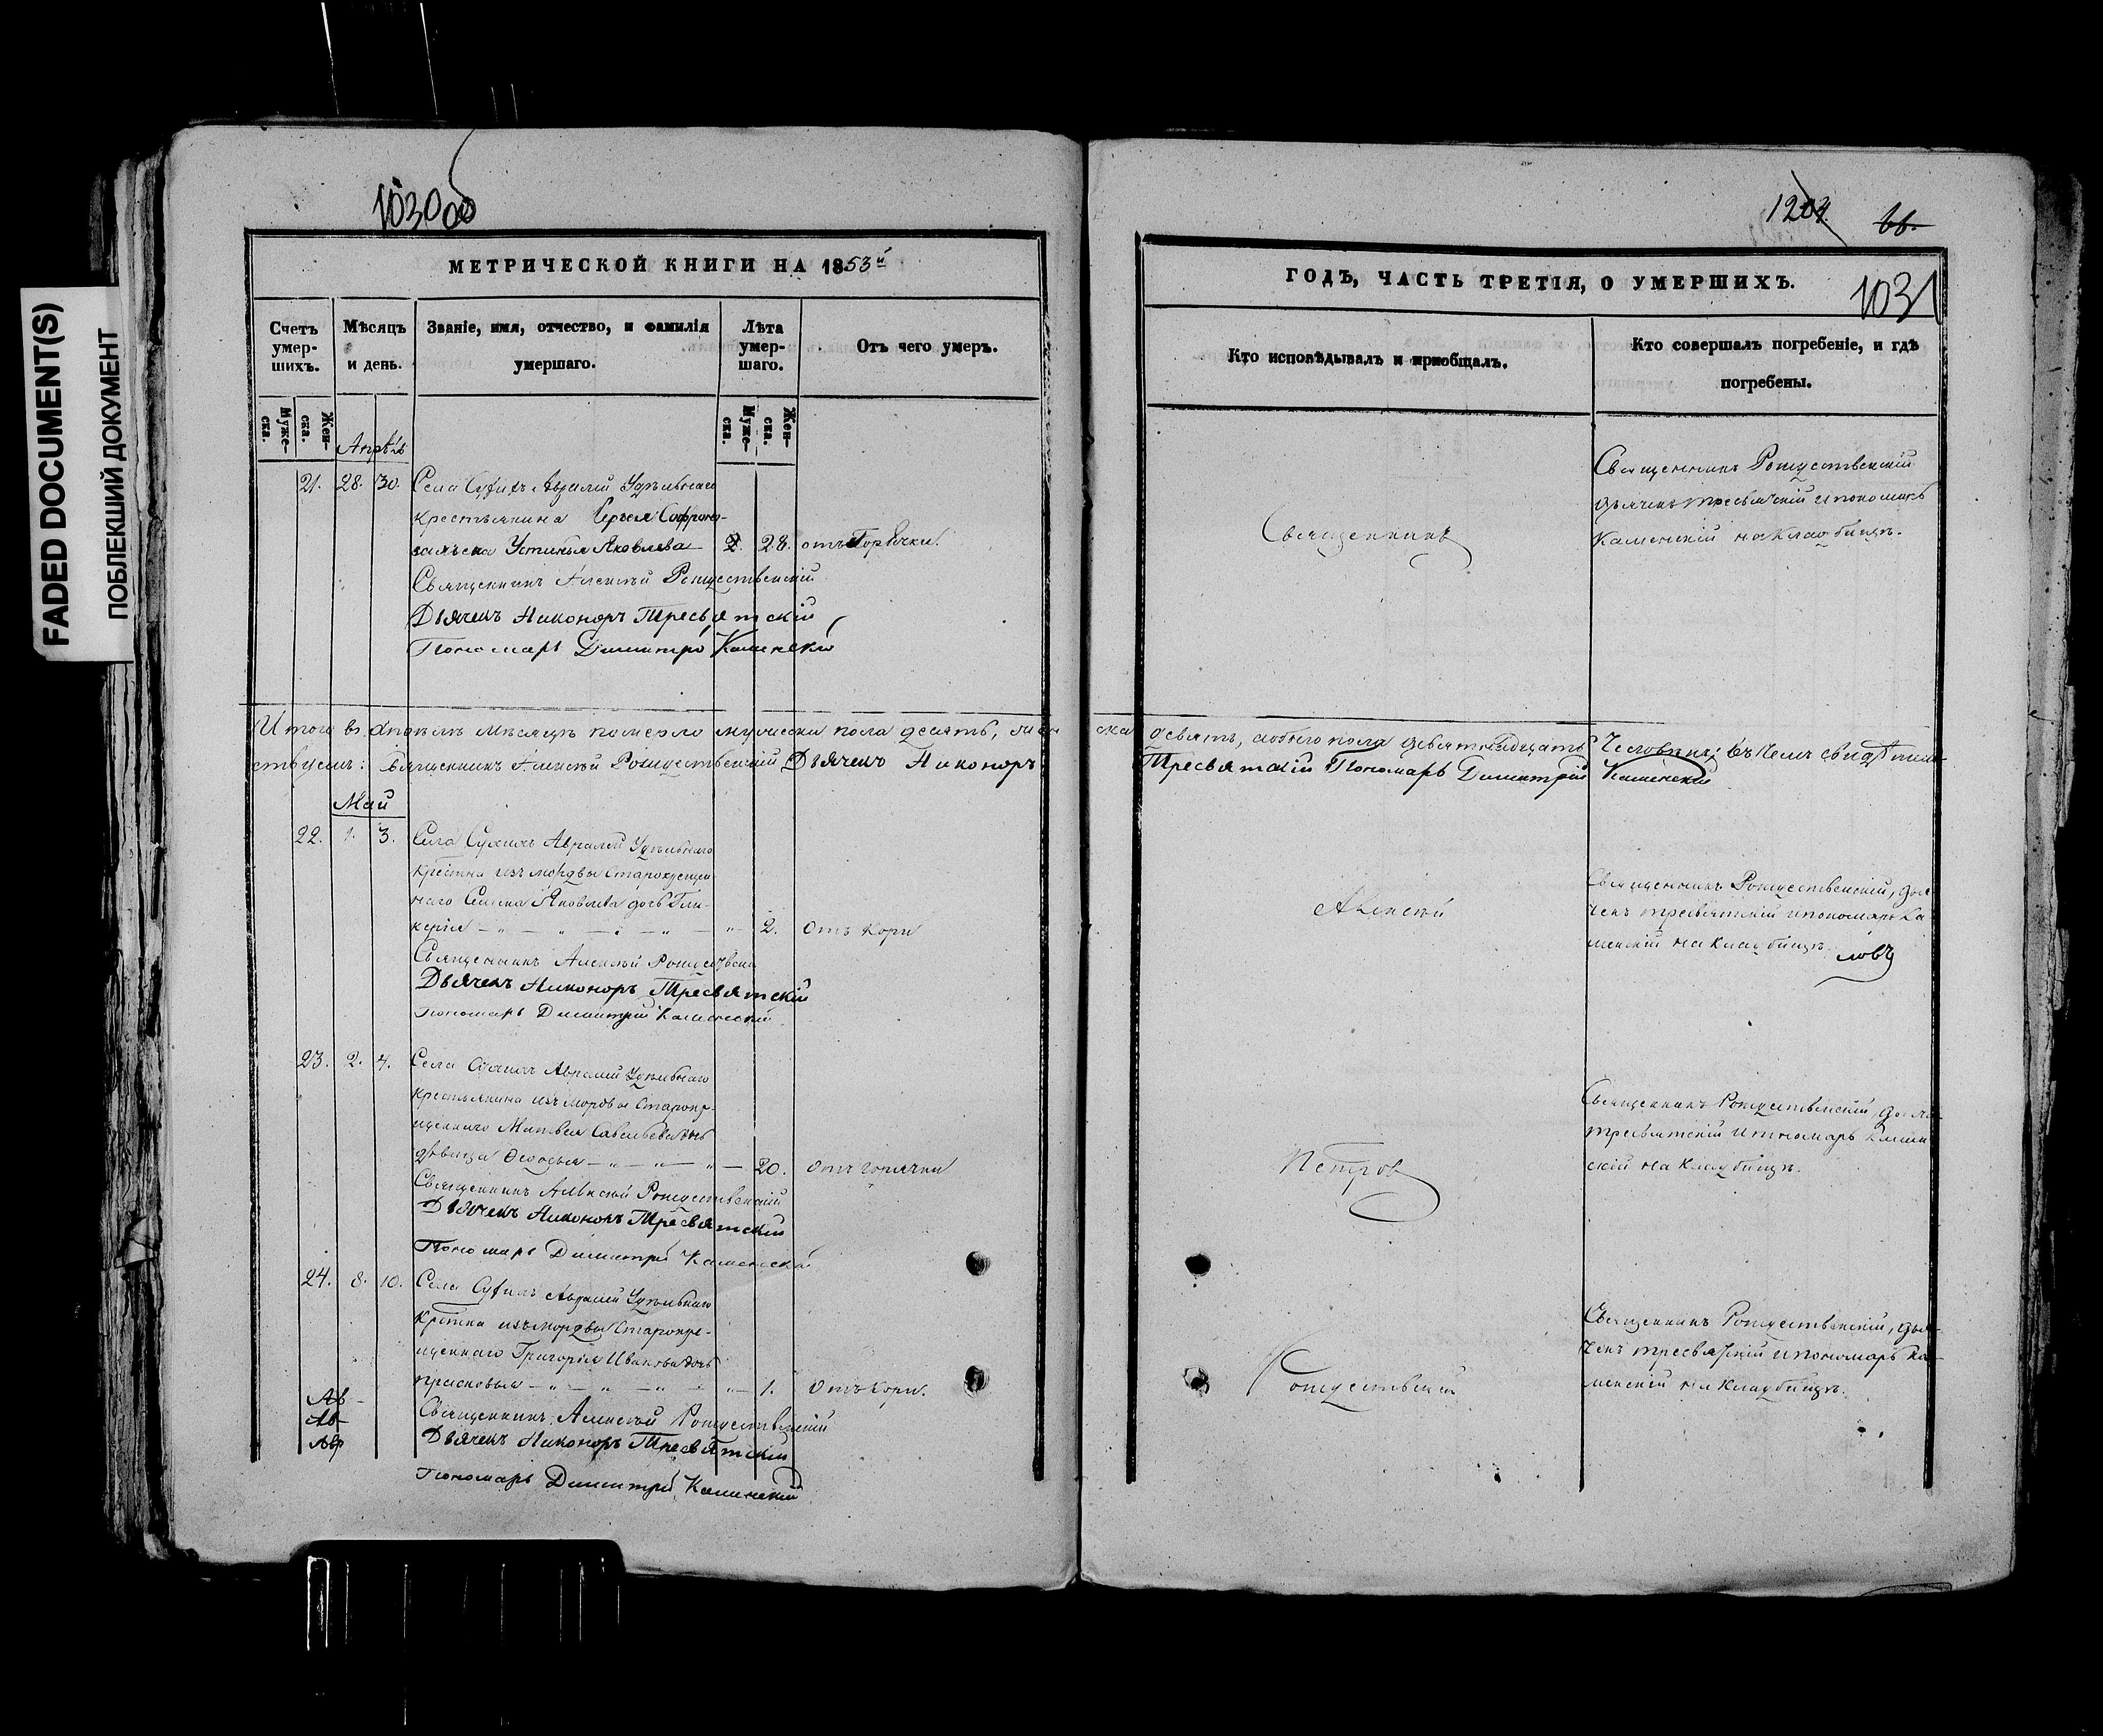 FADED DOCUMENT(S)
ПОБЛЕКШИЙ ДОКУМЕНТ
1030об
МЕТРИЧЕСКОЙ КНИГИ НА 1853й
Счетъ умер-шихъ.
Мѣсяцъ и день.
Званіе, имя, отчество, и фамилія умершаго.
Лѣта умер-шаго.
Отъ чего умеръ.
Муже-ска.
Жен-ска.
Муже-ска.
Жен-ска.
Апрѣль
21. 28. 30. Села Авралей Удѣльнаго
крестьянина Сергея Софроно-
жена Устинья Яковлева 28. отъ Горячки.
Священникъ Алексѣй Рождественскій
Дьячекъ Никоноръ Тресвятскій
Пономарь Димитрій Каменскій
Итого въ Апрѣлѣ мѣсяцѣ померло мужеска пола десять, жен
ствуемъ: Священникъ Алексѣй Рождественскій Дьячекъ Никоноръ
Май
22. 1. 3. Села Авралей Удѣльнаго
крестьна изъ мордвы Старокрещен-
наго Семена Яковлева дочь Гли-
керія — " — " — " — " — 2. отъ кори
Священникъ Алексѣй Рождествен
Дьячекъ Никоноръ Тресвятскій
Пономарь Димитрій Каменскій
23. 2. 4. Села Авралей Удѣльнаго
крестьянина изъ мордвы Старокр-
ещеннаго Матвея Савельева дочь
дѣвица Ѳедосья — " — " — " — 20. отъ горячки
Священникъ Алексѣй Рождественскій
Дьячекъ Никоноръ Тресвятскій
Пономарь Димитрій Каменскій
24. 8. 10. Села Авралей Удѣльнаго
Крестна изъ мордвы Старокре-
щеннаго Григорія Иванова дочь
Прасковья — " — " — " — " — 1. отъ кори.
Священникъ Алексѣй Рождественскій
Дьячекъ Никоноръ Тресвятскій
Пономарь Димитрій Каменскій
Ав-
Ав-
Авр
1204
66.
1031
ГОДЪ, ЧАСТЬ ТРЕТІЯ, О УМЕРШИХЪ.
Кто исповѣдывалъ и пріобщалъ.
Кто совершалъ погребеніе, и гдѣ погребены.
Священникъ
Священникъ Рождественскій
дьячекъ Тресвятскій и пономарь
Каменскій на кладбищѣ.
ска девять, обоего пола девятнадцать человѣкъ; въ чемъ свидѣтель-
Тресвятскій Пономарь Димитрій Каменскій
Алексѣй
Священникъ Рождественскій, дья-
чекъ Тресвятскій и пономарь Ка-
менскій на кладбищѣ.
ловъ
Петров
Священникъ Рождественскій, дьяч-
Тресвятскій и пономарь Камен
скій на кладбищѣ.
Рождественскій
Священникъ Рождественскій, дья-
чекъ Тресвятскій и пономарь Ка-
менскій на кладбищѣ.